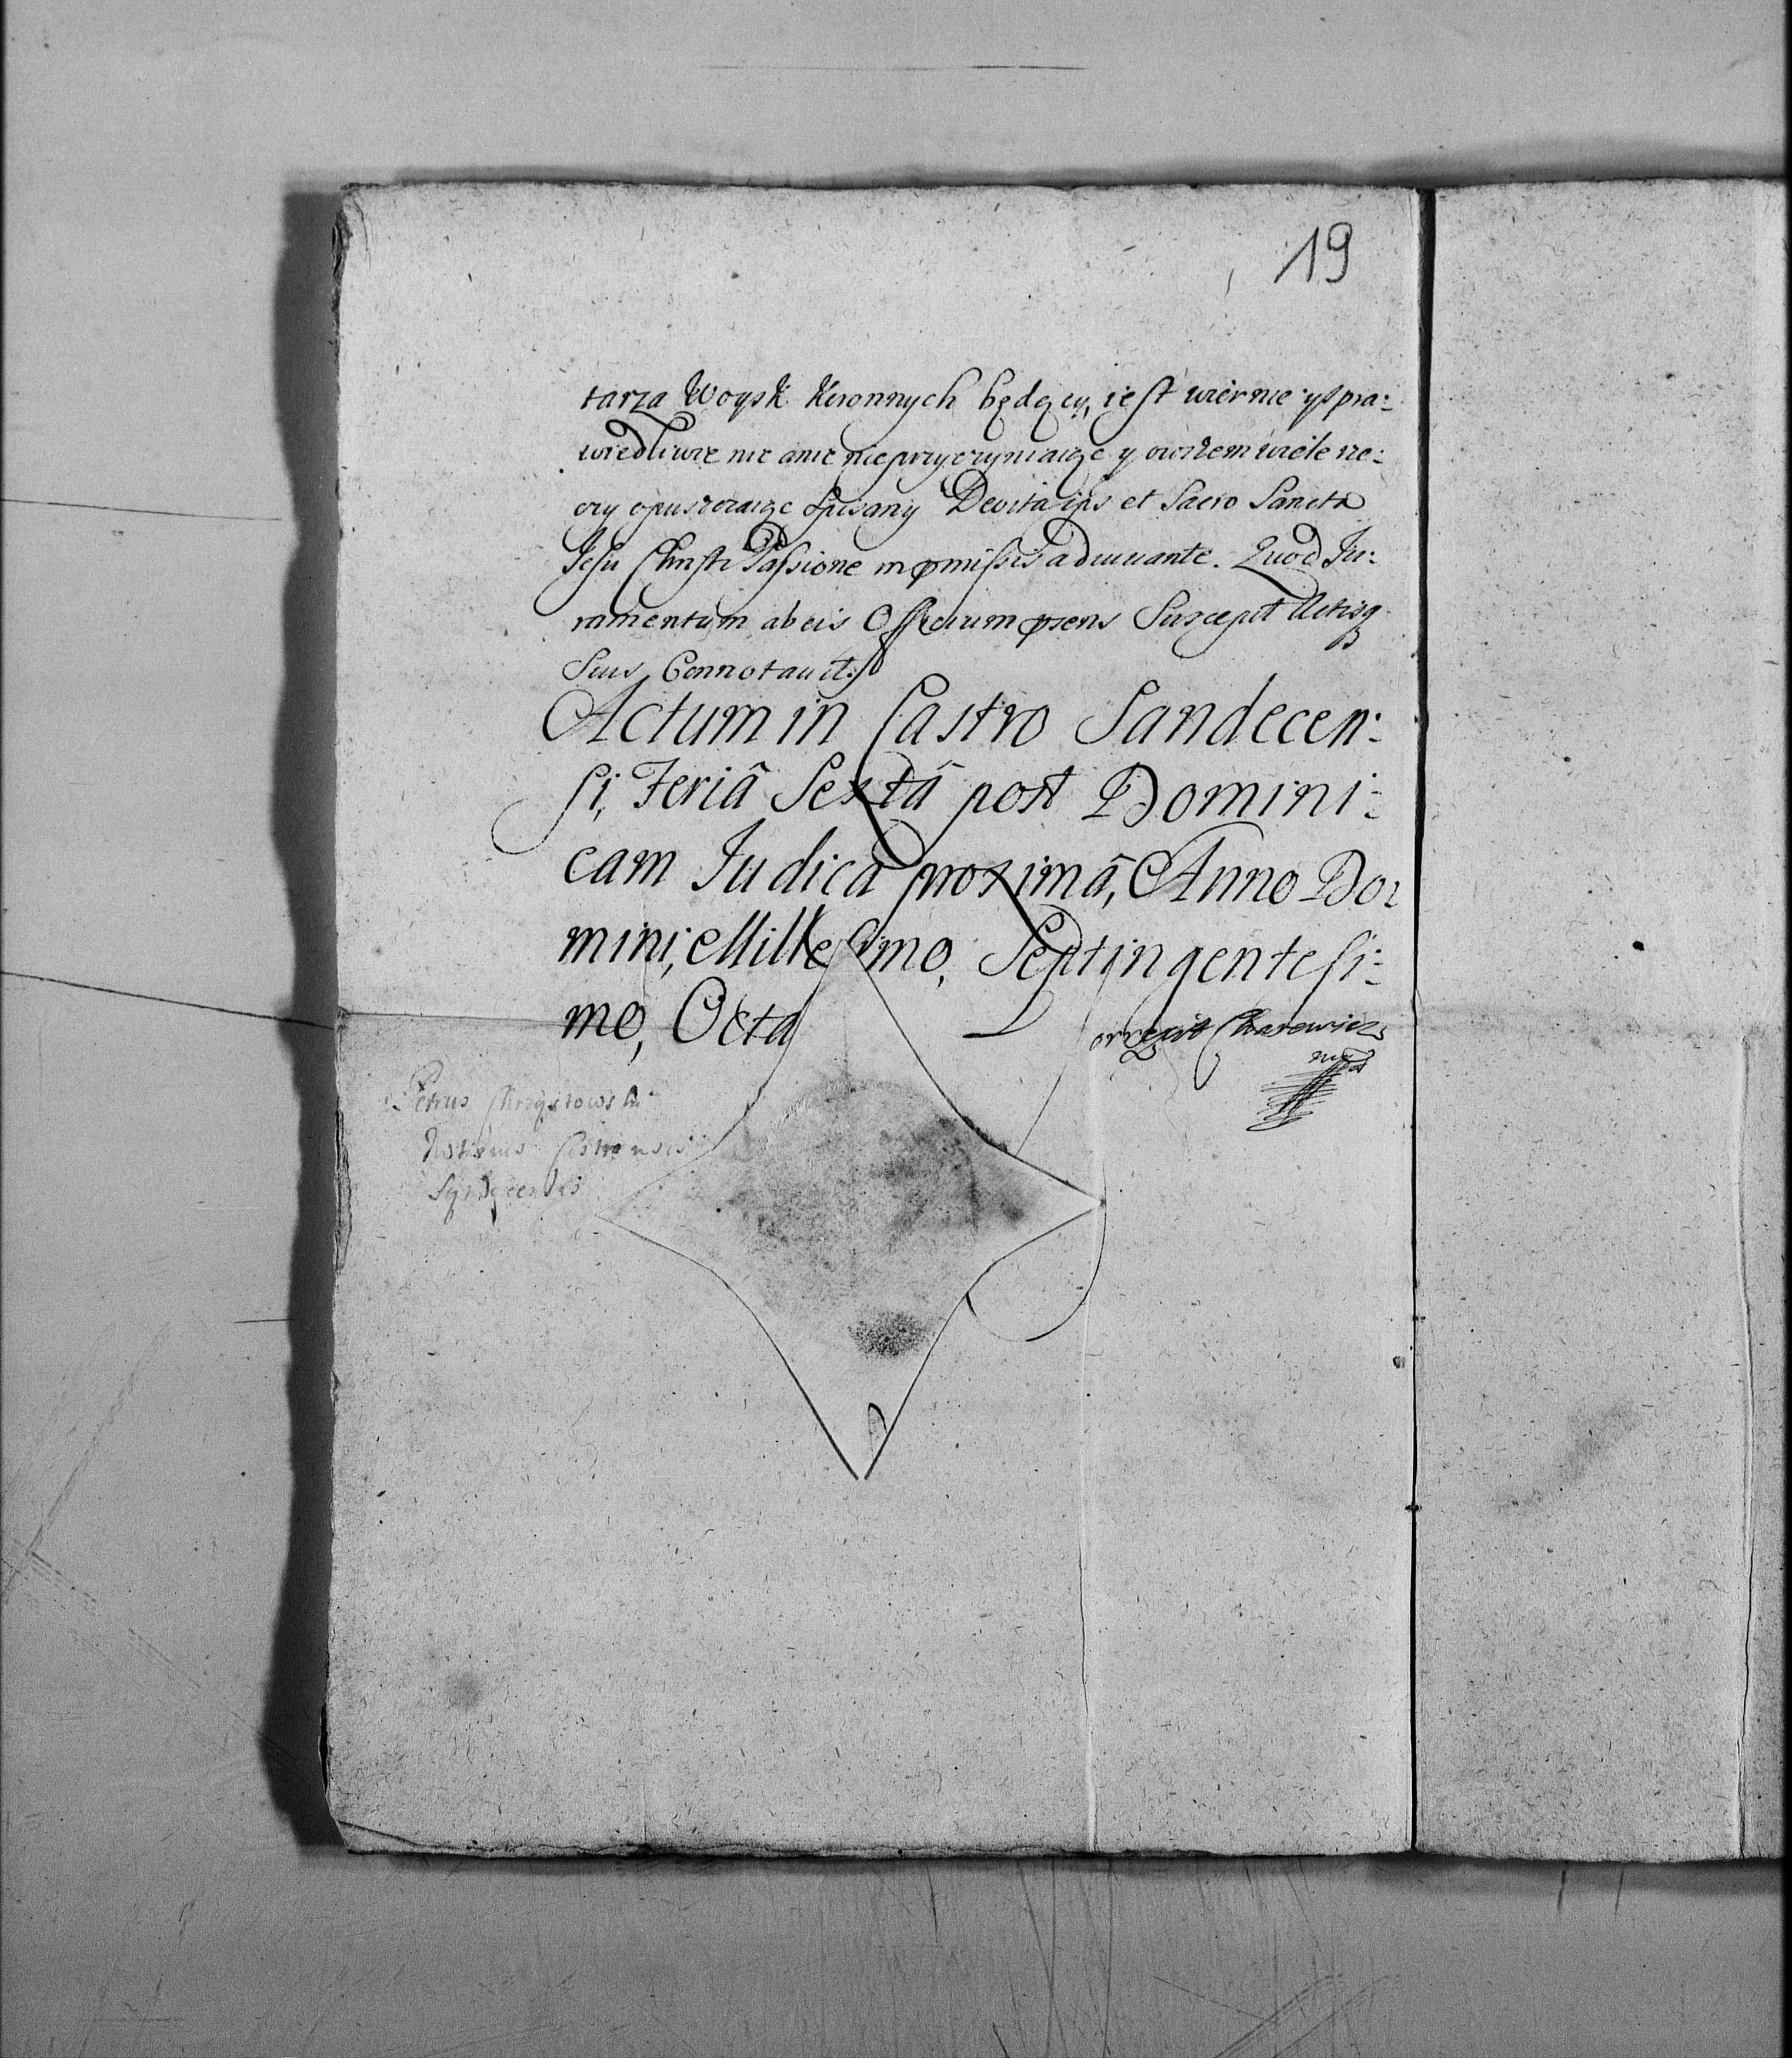 19
tarza Woysk Koronnych będący, iest wiernie y spra:
wiedliwie nic a nic nie przyczyniaiąc y owszem wiele rze:
czy opuszczaiąc spisany Deo ita ips et Sacro Sancta
Jesu Christi Passione in pmissis adiuuante. Quod Ju:
ramentum ab eis Officium psens Suscepit Actisq
Suis Connotauit.
Actum in Castro Sandecen:
si, Feriâ Sextâ post Domini:
cam Judicâ proximâ, Anno Do:
mini, Millesimo, Septingentesi:
mo, Octa
orrexit
mp
Petrus
Notarius Castrensis
Sandecensis